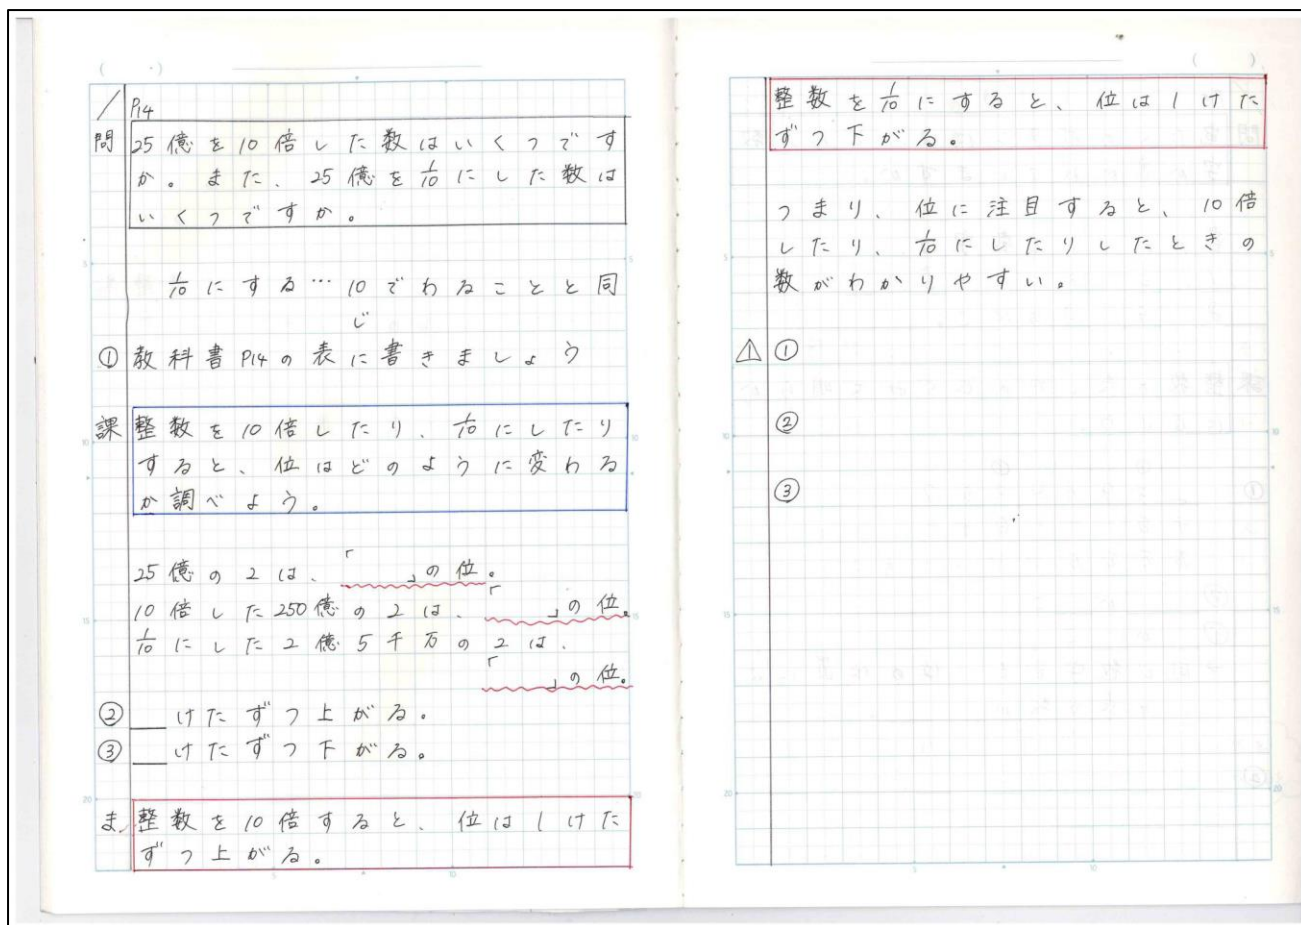 ( ・ )
/ P14
問 25億を10倍した数はいくつです
か。また、25億を1/10にした数は
いくつですか。
1/10にする…10でわることと同
じ
① 教科書P14の表に書きましょう
課 整数を10倍したり、1/10にしたり
すると、位はどのように変わる
か調べよう。
25億の2は、「　　」の位。
10倍した250億の2は、「　　」の位。
1/10にした2億5千万の2は、
「　　」の位。
② __けたずつ上がる。
③ __けたずつ下がる。
ま、整数を10倍すると、位は1けた
ずつ上がる。
( )
整数を1/10にすると、位は1けた
ずつ下がる。
つまり、位に注目すると、10倍
したり、1/10にしたりしたときの
数がわかりやすい。
△1 ①
②
③